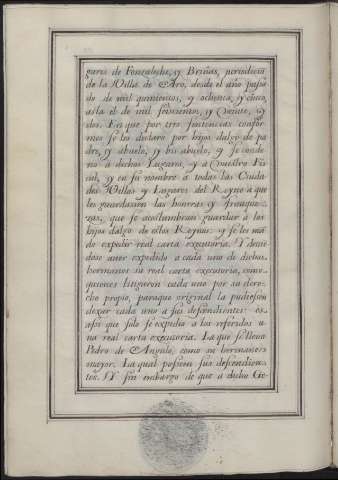 gares de Fonzaleche, y Briñas, juridición
de la Villa de Aro, desde el año pasa
do de mil quinientos, y ochenta, y cinco,
asta el de mil seiscientos, y veinte, y
dos. En que por tres sentencias confor
mes se los declaro por hijos dalgo de pa
dre, y abuelo, y bis abuelo; y se conde
no a dichos Lugares, y a nuestro Fis
cal, y en su nombre a todas las Ciuda
des Villas y Lugares del Reyno a que
les guardassen las honras y franque
zas, que se acostumbran guardar a los
hijos dalgo de estos Reynos: y se les man
do expedir real carta executoria. Y devien
dose aver expedido a cada uno de dichos
hermanos su real carta executoria, como
quienes litigaron cada uno por su dere-
cho propio, paraque original la pudiesen
dexar cada uno a sus descendientes: es
assi que solo se expedio a los referidos u-
na real carta executoria. La que se lleuo
Pedro de Angulo, como su hermano
mayor. La qual posien sus descendien-
tes. Y sin embargo de que a dicho Ge-